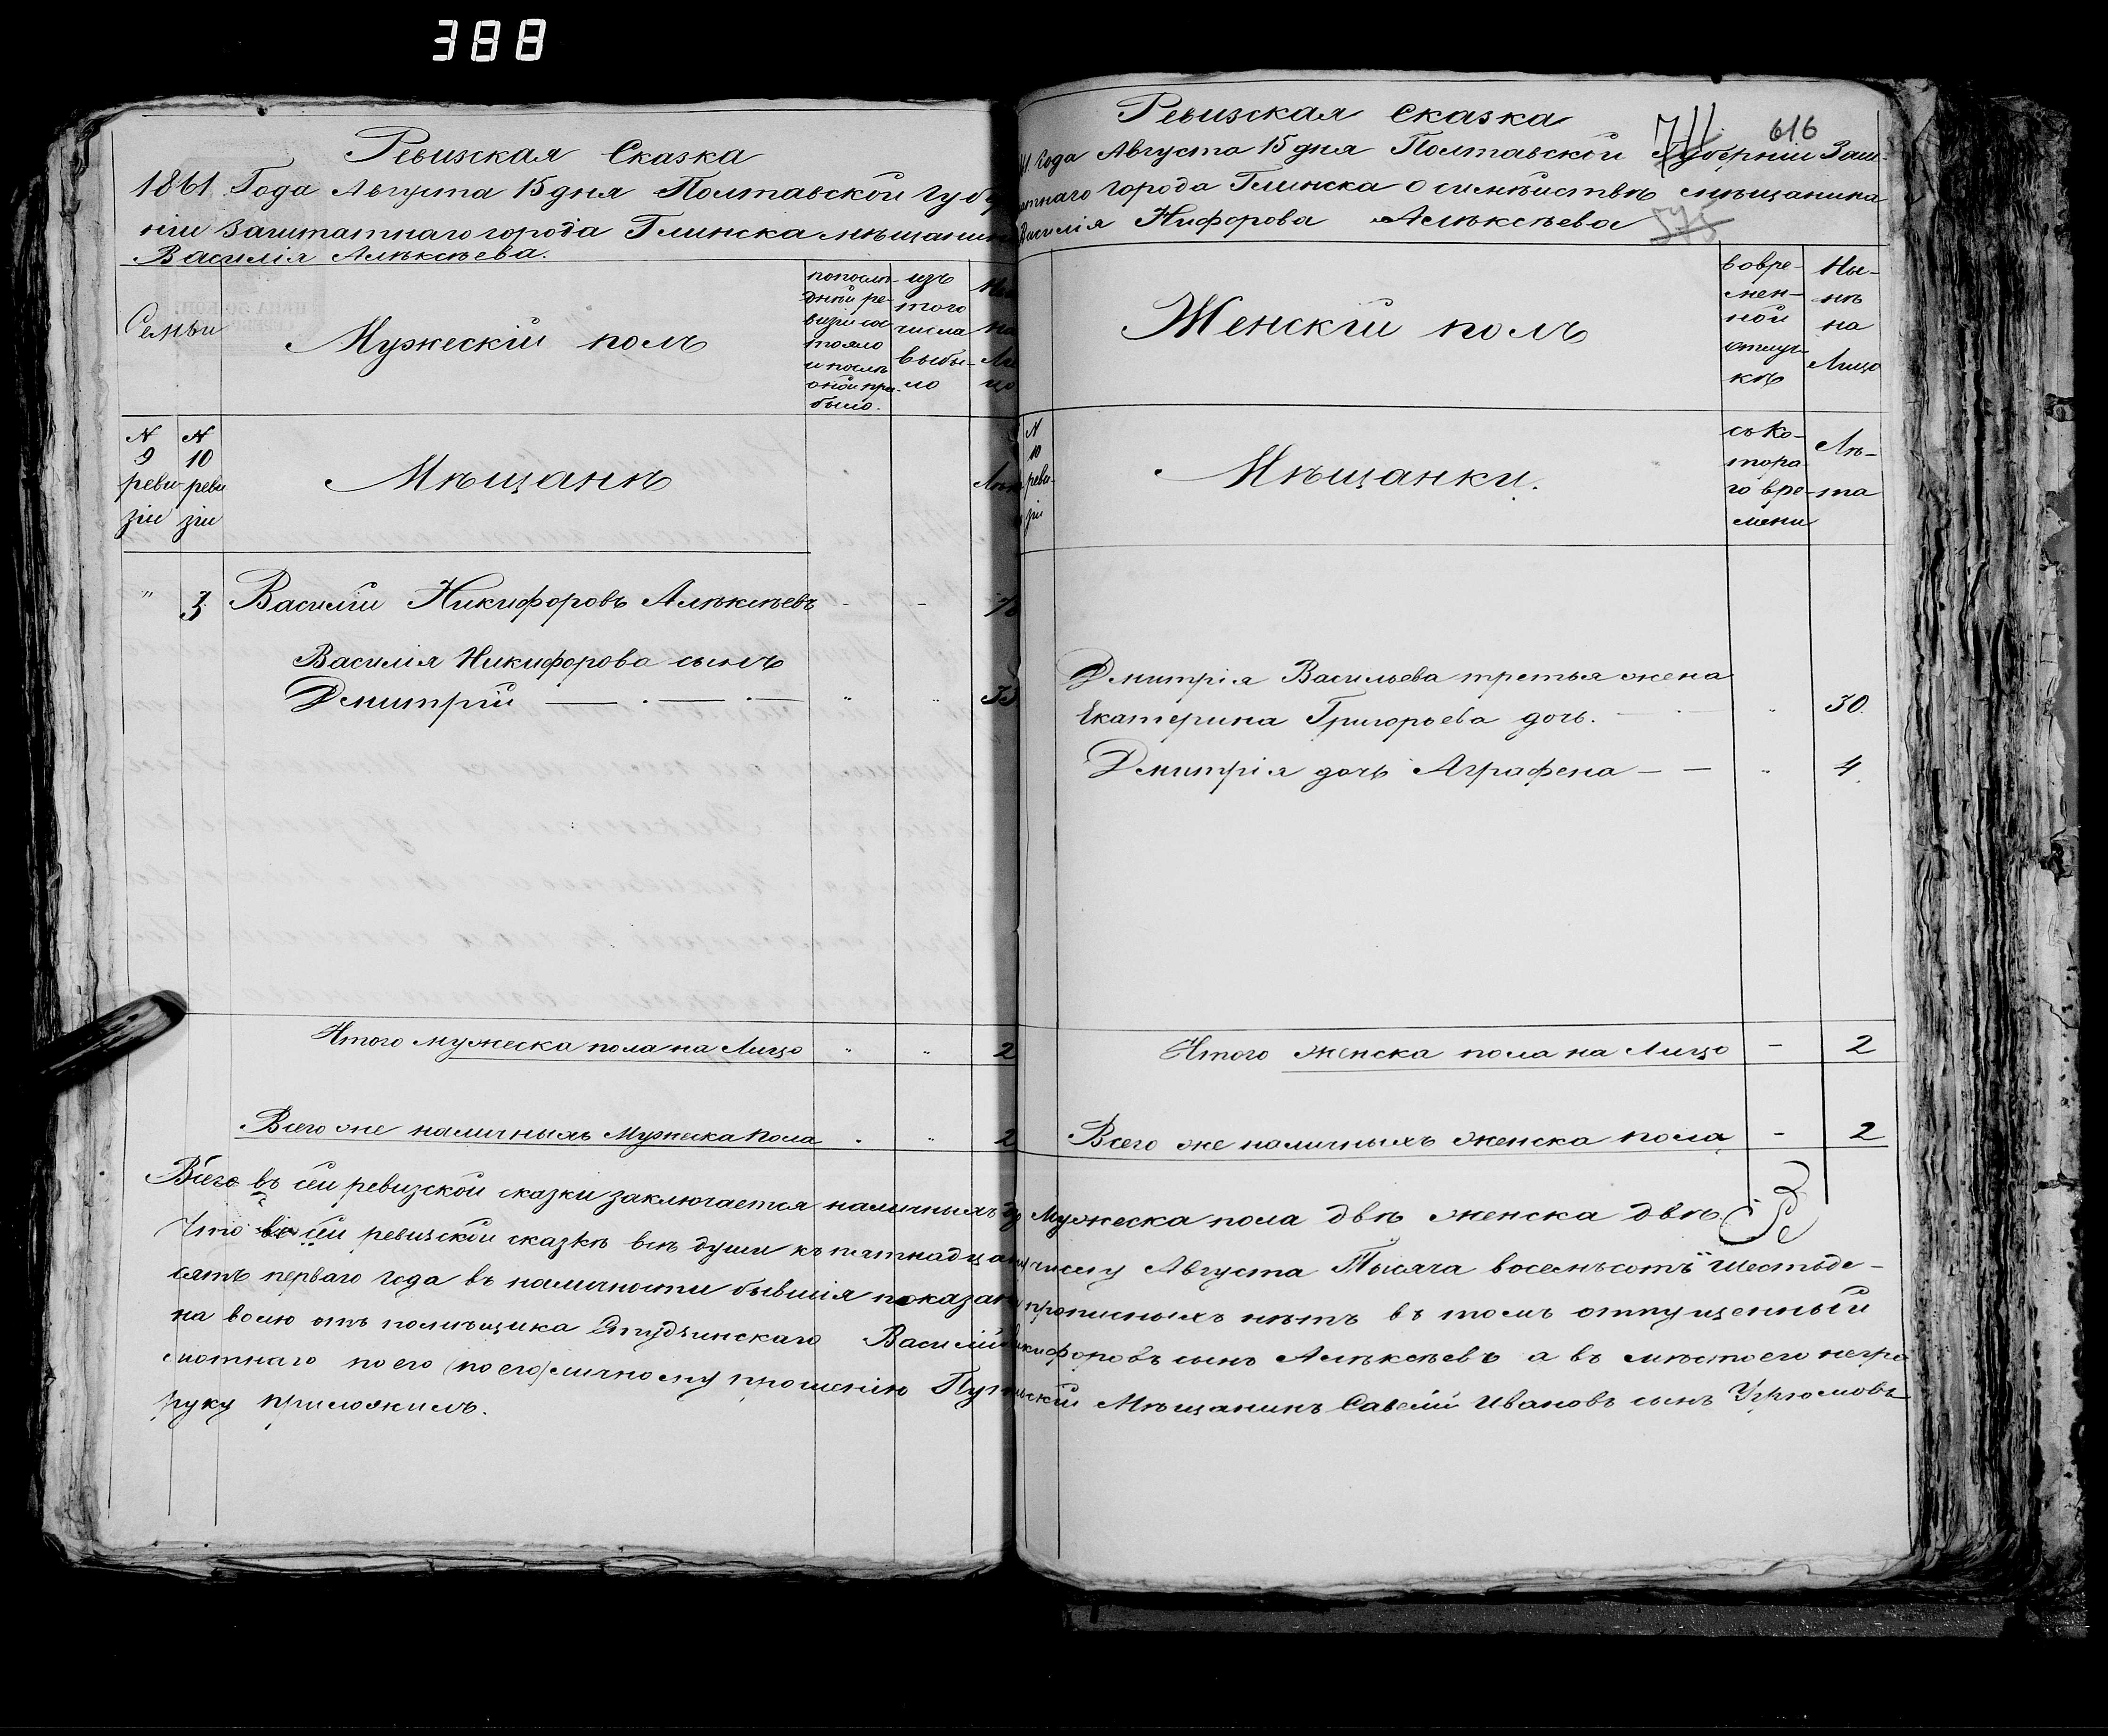 388
Ревизская Сказка
1861 Года Августа 15 дня Полтавской Губер
ніи Заштатнаго города Глинска мѣщанин
Василія Алѣксѣева.
Семьи
Мужескій полъ
попослѣ-
дней ре-
визіи со
тояло
и послѣ
оной при-
было.
изъ
того
числа
выбы-
ло
N
9
реви
зіи
N
10
реви
зіи
Мѣщанѣ
" 3 Василій Никифоровъ Алѣксѣевъ - -
Василія Никифорова сынъ
Дмитрій — . — . — " "
Итого мужеска пола на Лицо " " 2
Всего же наличныхъ Мужеска пола . " 2
Ревизская Сказка
711 616
Года Августа 15 дня Полтавской Губерніи Заш-
татнаго города Глинска о симѣйствѣ мѣщанина
Василія Нифорова Алѣксѣева
575
Женскій полъ
вовре-
мен-
ной
отлуч-
кѣ
Ны-
нѣ
на
Лицо
N
10
реви-
зіи
Мѣщанки.
съ Ко-
тора-
го вре-
мени
Лѣ-
та
Дмитрія Васильева третья жена
Екатерина Григорьева дочь. — - — " 30.
Дмитрія дочь Аграфена — — " 4.
Итого женска пола на Лицо - 2
Всего же наличныхъ женска пола - 2
Всего въ сей ревизской сказки заключается наличныхъ Мужеска пола двѣ женска двѣ
Что въ сей ревизской сказкѣ всѣ души къ пятнадцатому числу Августа Тысяча восемьсотъ шестьде-
сятъ перваго года въ наличности бывшія показаны прописныхъ нѣтъ въ томъ отпущенный
на волю отъ помѣщика Василій Никифоровъ сынъ Алѣксѣевъ а въ мѣсто его негра
мотнаго по его (по его) личному прошенію Мѣщанинъ Савелій Ивановъ сынъ Угрюмовъ
руку приложилъ.